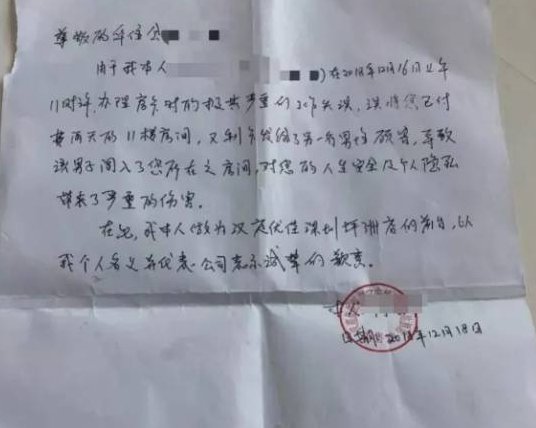 尊敬的华住会
由于我本人 )在2018年12月16日上午
11时许,办理房卡时的极其严重的工作失误,误将您已付
费两天的11楼房间,又制卡发给了另一名男性顾客,导致
该男子闯入了您所在之房间,对您的人生安全及个人隐私
带来了严重的伤害。
在此,我本人做为汉庭优佳深圳坪洲店的前台,以
我个人名义并代表公司表示诚挚的歉意。
日期:2018年12月18日